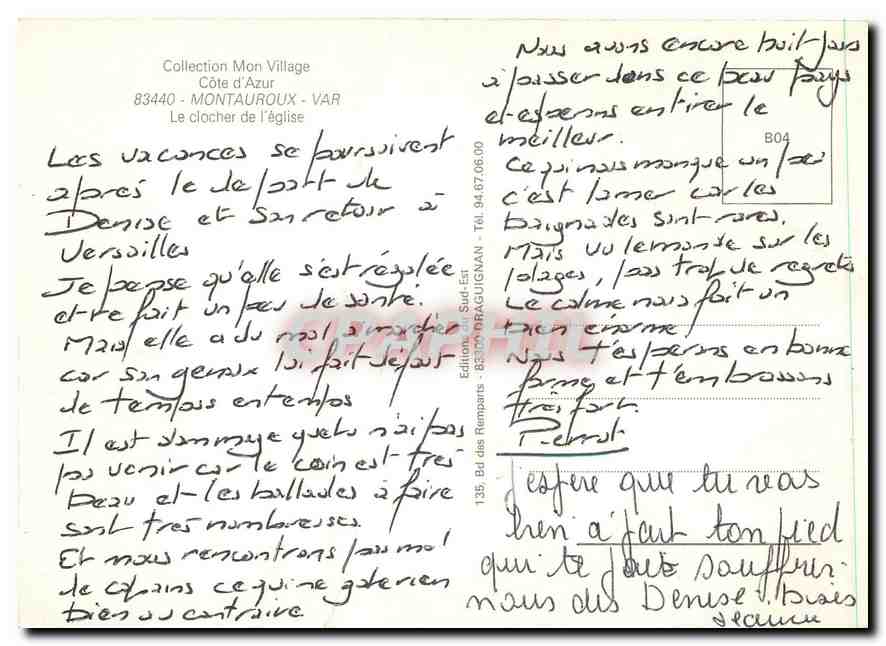 Collection Mon Village
Côte d'Azur
83440 - MONTAUROUX - VAR
Le clocher de l'église
Les vacances se poursuivent
après le depart de
Denise et son retour à
Versailles
Je pense qu'elle s'est régulée
et refait un peu de santé.
Mais elle a du mal a marcher
car son genoux lui fait defaut
de temps en temps
Il est dommage que tu n'ai pas
pu venir car le coin est très
beau et les ballades à faire
sont très nombreuses.
Et nous rencontrons pas mal
de copains ce qui ne gate rien
bien au contraire.
Editions du Sud-Est
135, Bd des Remparts - 83300 DRAGUIGNAN - Tél. 94.67.06.00
B04
Nous avons encore huit jours
à passer dans ce beau pays
et esperons en tirer le
meilleur.
Ce qui nous manque un peu
c'est la mer car les
baignades sont rares.
Mais vu le monde sur les
plages, pas trop de regrets
Le calme nous fait un
bien énorme!
Nous t'esperons en bonne
forme et t'embrassons
très fort.
Pierrot
j'espère que tu vas
bien a part ton pied
qui te fais souffrir
nous dis Denise. Bises
Jeanine
GRAPHIL